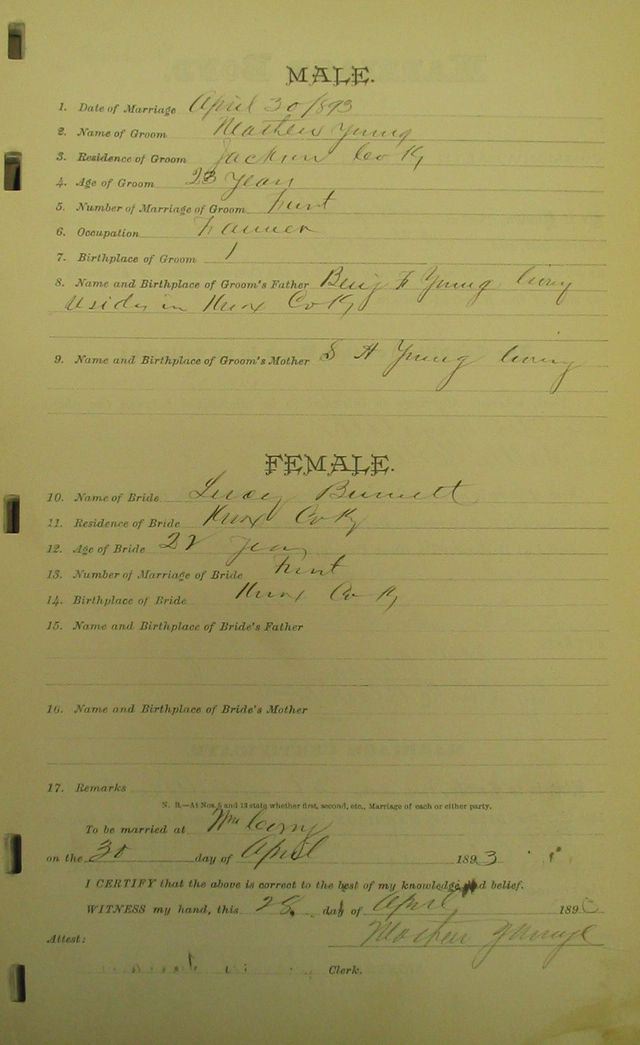 MALE.
1. Date of Marriage April 30 1893
2. Name of Groom Mathew Young
3. Residence of Groom Jackson Co Ky
4. Age of Groom 23 years
5. Number of Marriage of Groom First
6. Occupation Farmer
7. Birthplace of Groom
8. Name and Birthplace of Groom's Father Benj F Young living
resides in Knox Co Ky
9. Name and Birthplace of Groom's Mother S A Young living
FEMALE.
10. Name of Bride Burnett
11. Residence of Bride Knox Co Ky
12. Age of Bride 22 years
13. Number of Marriage of Bride First
14. Birthplace of Bride Knox Co Ky
15. Name and Birthplace of Bride's Father
16. Name and Birthplace of Bride's Mother
17. Remarks
N. B.—At Nos. 5 and 13 state whether first, second, etc., Marriage of each or either party.
To be married at Wm
on the 30 day of April 1893
I CERTIFY that the above is correct to the best of my knowledge and belief.
WITNESS my hand, this 28 day of April 189
Attest: Mathew Young
Clerk.